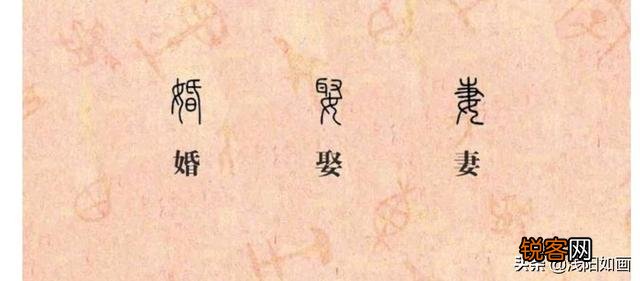 婚 娶 妻
婚 娶 妻
锐客网
头条 @浅阳如画